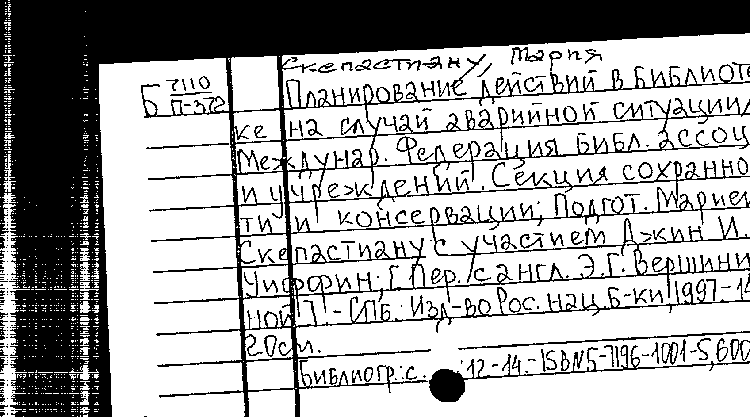 Скепастиану, Мария
Б 7110 П-372
Планирование действий в библиоте
ке на случай аварийной ситуации/
Междунар. Федерация библ. ассоц
и учреждений. Секция сохранно
ти и консервации; Подгот. Марией
Скепастиану с участием Джин И.
Уиффин; [Пер. с англ. Э.Г. Вершини
ной]. - СПб.: Изд-во Рос. нац. б-ки, 1997.-14
20см.
Библиогр.: с. 12-14.-ISBN 5-7196-1001-5, 600